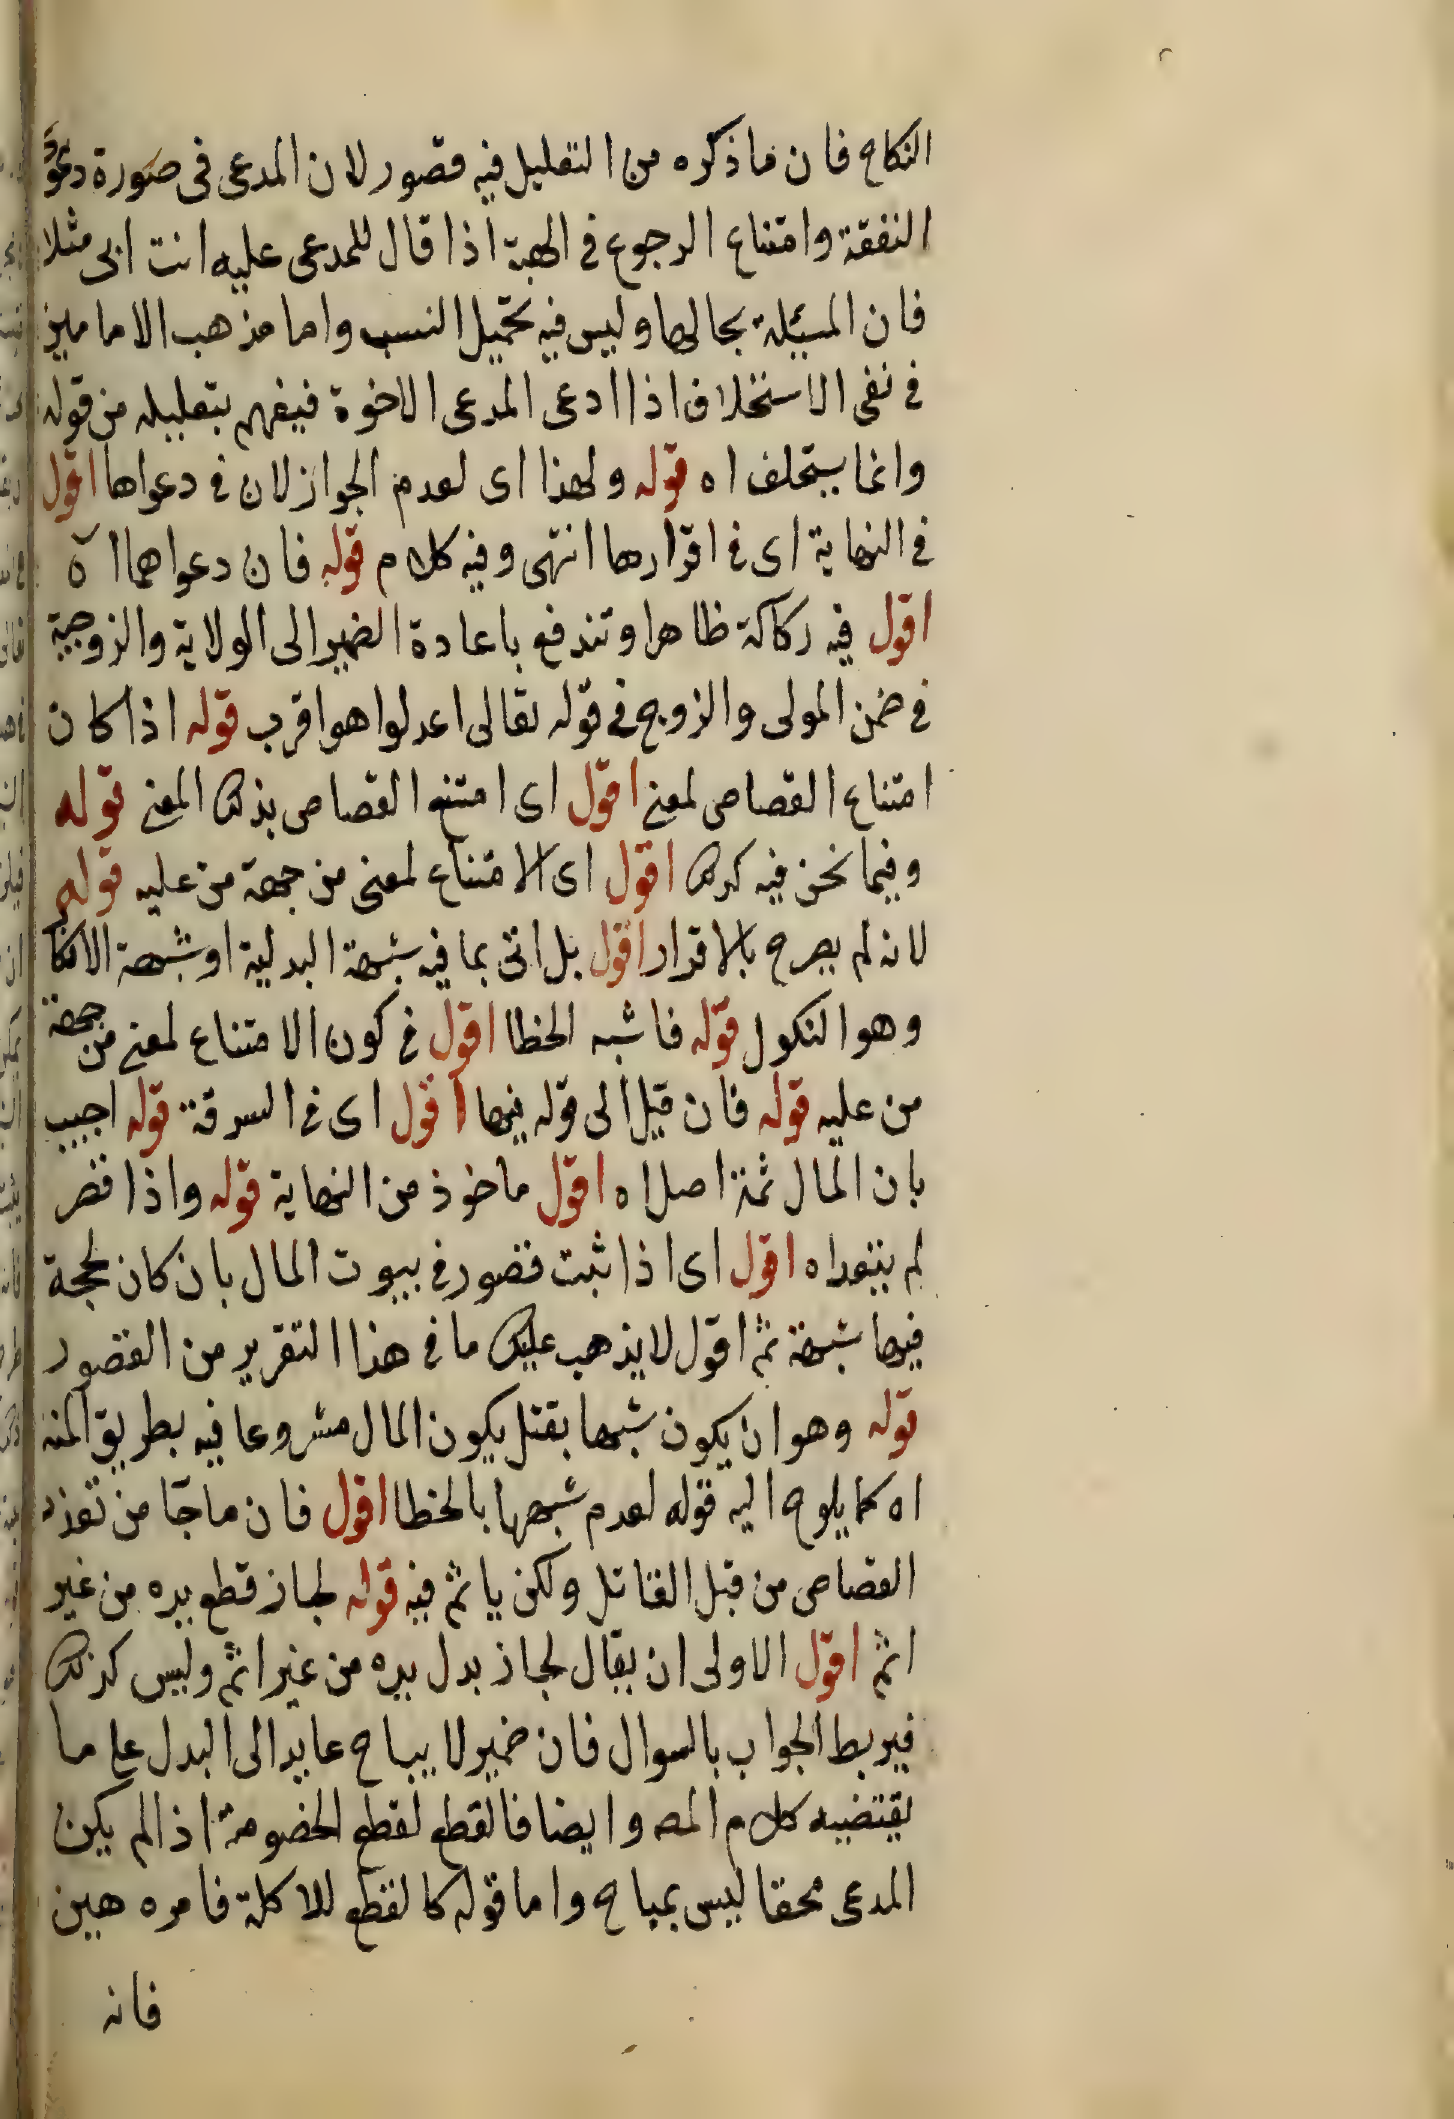 النكاح فان ما ذكره من التعليل فيه قصور لان المدعى فى صورة دعوى
النفقة وامتناع الرجوع فى الهبة اذا قال للمدعى عليه انت ابى مثلا
فان المسئلة بحالها وليس فيه تحميل النسب واما مذهب الامامين
فى نفى الاستحلاف اذا ادعى المدعى الاخوة فيفهم بتعليله من قوله
وانما يستحلف اه قوله ولهذا اى لعدم الجواز لان فى دعواها اقول
فى النهاية اى فى اقرارها انتهى وفيه كلام قوله فان دعواهما اه
اقول فيه ركاكة ظاهرا وتندفع باعادة الضمير الى الولاية والزوجية
فى ضمن المولى والزوج فى قوله تعالى اعدلوا هو اقرب قوله اذا كان
امتناع القصاص لمعنى اقول اى امتنع القصاص بذلك المعنى قوله
وفيما نحن فيه كذلك اقول اى الامتناع لمعنى من جهة من عليه قوله
لانه لم يصرح بالاقرار اقول بل اتى بما فيه شبهة البدلية او شبهة الانكا
وهو النكول قوله فاشبه الخطا اقول فى كون الامتناع لمعنى من جهة
من عليه قوله فان قيل الى قوله فيها اقول اى فى السرقة قوله اجيب
بان المال ثمة اصل اه اقول ماخوذ من النهاية قوله واذا قصر
لم يتعد اه اقول اى اذا ثبت قصور فى بيوت المال بان كان لحجة
فيها شبهة ثم اقول لا يذهب عليك ما فى هذا التقرير من القصور
قوله وهو ان يكون شبها بقتل يكون المال مشروعا فيه بطريق المنة
اه كما يلوح اليه قوله لعدم شبهها بالخطا اقول فان ما جا من تعذر
القصاص من قبل القاتل ولكن ياثم فيه قوله لجاز قطع يده من غير
اثم اقول الاولى ان يقال لجاز بدل يده من غير اثم وليس كذلك
فيربط الجواب بالسوال فان ضمير لا يباح عايد الى البدل على ما
يقتضيه كلام المصـ وايضا فالقطع لقطع الخصومة اذا لم يكن
المدعى محقا ليس بمباح واما قوله كالقطع للاكلة فامره هين
فانه